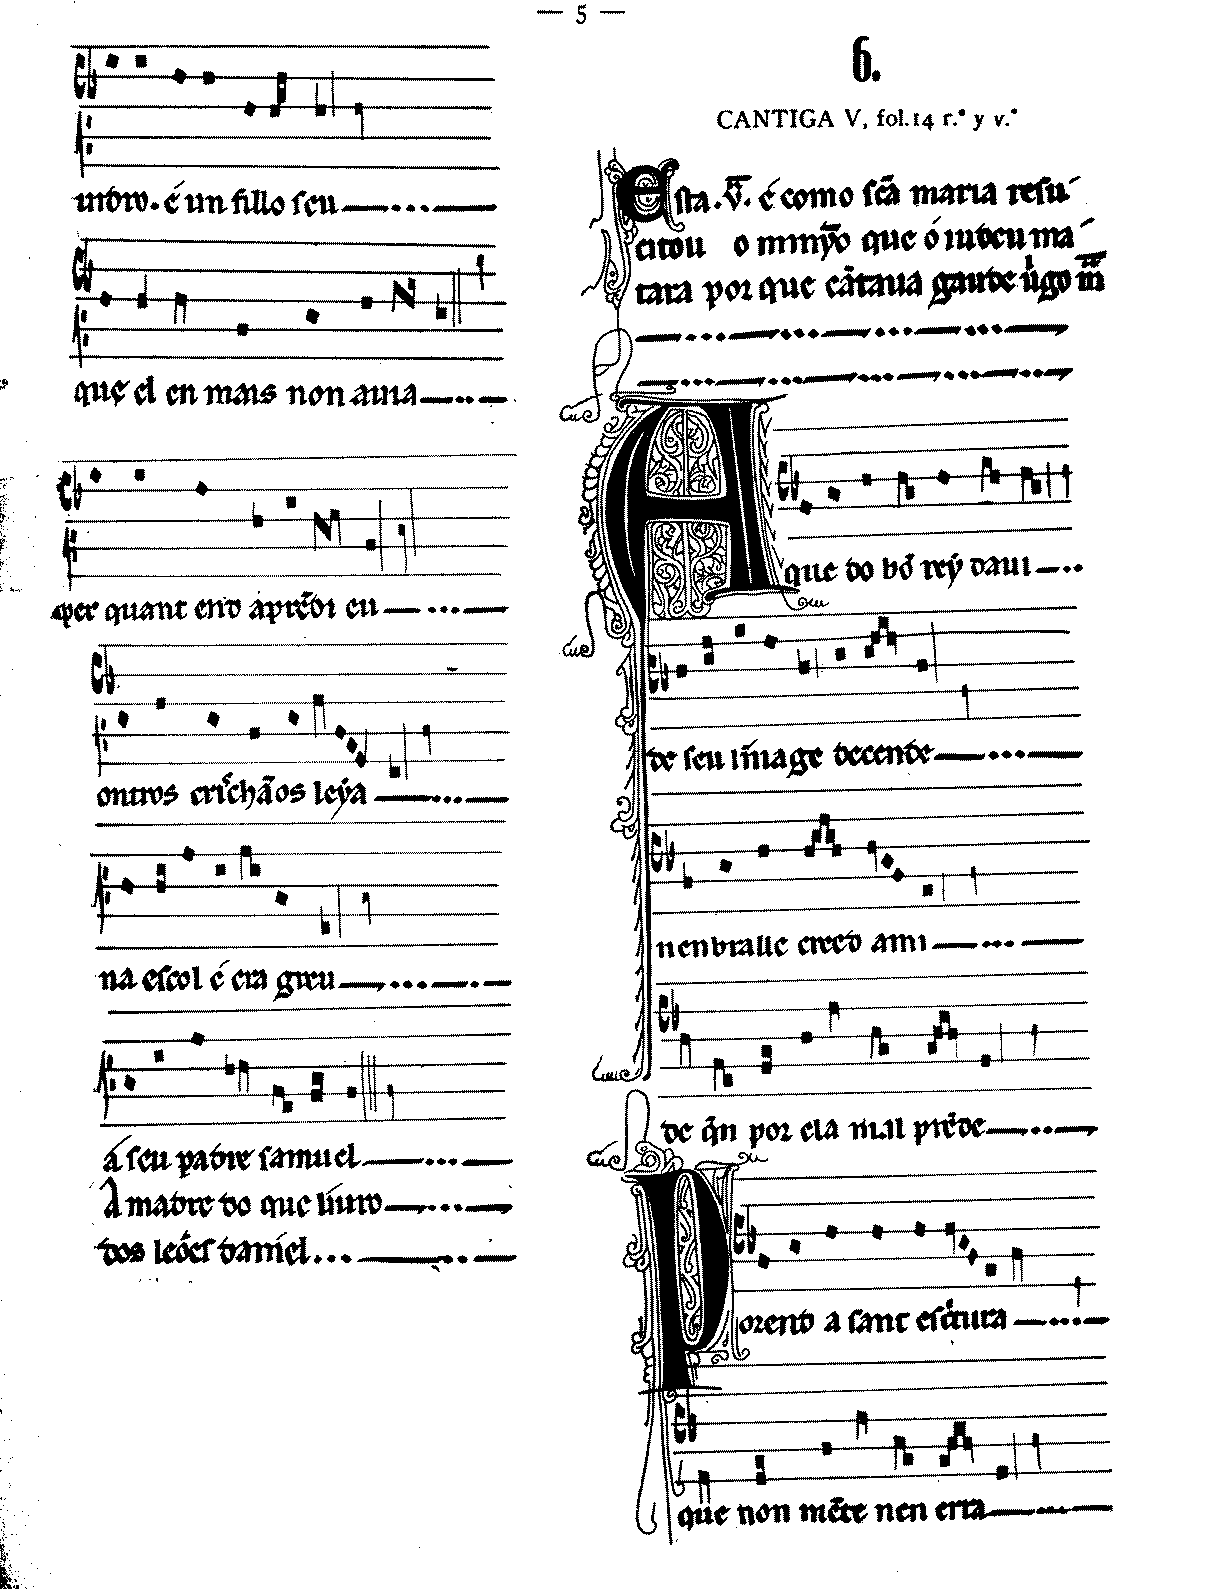 — 5 —
undo. é un fillo seu
que el en mais non auia
per quant end aprẽdi eu
ontros cri̾chãos leýa
na escol é era greu
á seu padre samuel
A madre do que liuro
dos leões daniel...
6.
CANTIGA V, fol. 14 r.º y v.º
Esta .v̄. é como scã maria resu
citou o minỹo que ó iudeu ma
tara por que cãtaua gaude ũgo m̃
A que do bõ rey daui
de seu linnage decende
nenbralle creed ami
de q̃n por ela mal prẽde
Porend a sant escritura
que non mẽte nen erra